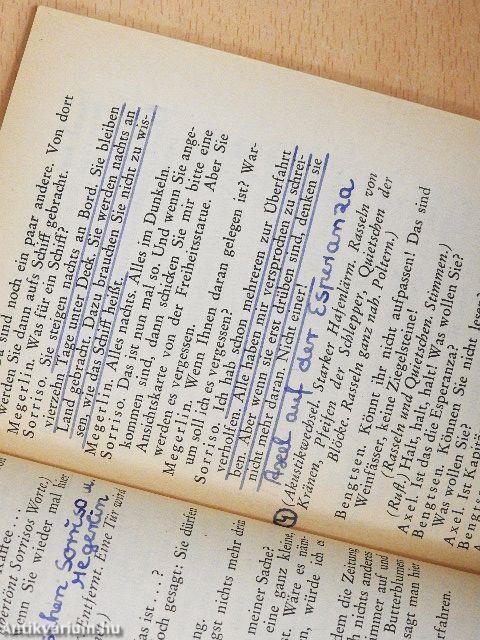 sind noch ein paar andere. Von dort
werden Sie dann aufs Schiff gebracht.
Megerlin. Was für ein Schiff?
Sorriso. Sie steigen nachts an Bord. Sie bleiben
vierzehn Tage unter Deck. Sie werden nachts an
Land gebracht. Dazu brauchen Sie nicht zu wis-
sen, wie das Schiff heißt.
Megerlin. Alles nachts. Alles im Dunkeln.
Sorriso. Das ist nun mal so. Und wenn Sie ange-
kommen sind, dann schicken Sie mir bitte eine
Ansichtskarte von der Freiheitsstatue. Aber Sie
werden es vergessen.
Megerlin. Wenn Ihnen daran gelegen ist? War-
um soll ich es vergessen?
Sorriso. Ich hab schon mehreren zur Überfahrt
verholfen. Alle haben mir versprochen zu schrei-
ben. Aber wenn sie erst drüben sind, denken sie
nicht mehr daran. Nicht einer!
Axel auf der Esperanza
4
(Akustikwechsel. Starker Hafenlärm. Rasseln von
Kränen, Pfeifen der Schlepper, Quietschen der
Blöcke. Rasseln ganz nah, Poltern.)
Bengtsen. Könnt ihr nicht aufpassen! Das sind
Weinfässer, keine Ziegelsteine!
(Rasseln und Quietschen. Stimmen.)
(Ruft.) Halt, halt, halt! Was wollen Sie?
Axel. Ist das die Esperanza?
Bengtsen. Können Sie nicht lesen?
Was wollen Sie?
Axel. Ist Kapitä
Kaffee ...
ertönt Sorrisos Worte.)
nn Sie wieder mal hier
chem Sorriso u.
Megerlin
ntfernt. Eine Tür wird
as ist ...?
och gesagt: Sie dürfen
ngst nichts mehr drin
meiner Sache?
eine ganz kleine,
Wäre es näm-
n, würde ich es
dem die Zeitung
h nichts anderes
mmer auf und
Butterblumen
gt man hier
fahren.
Antikvarium.hu